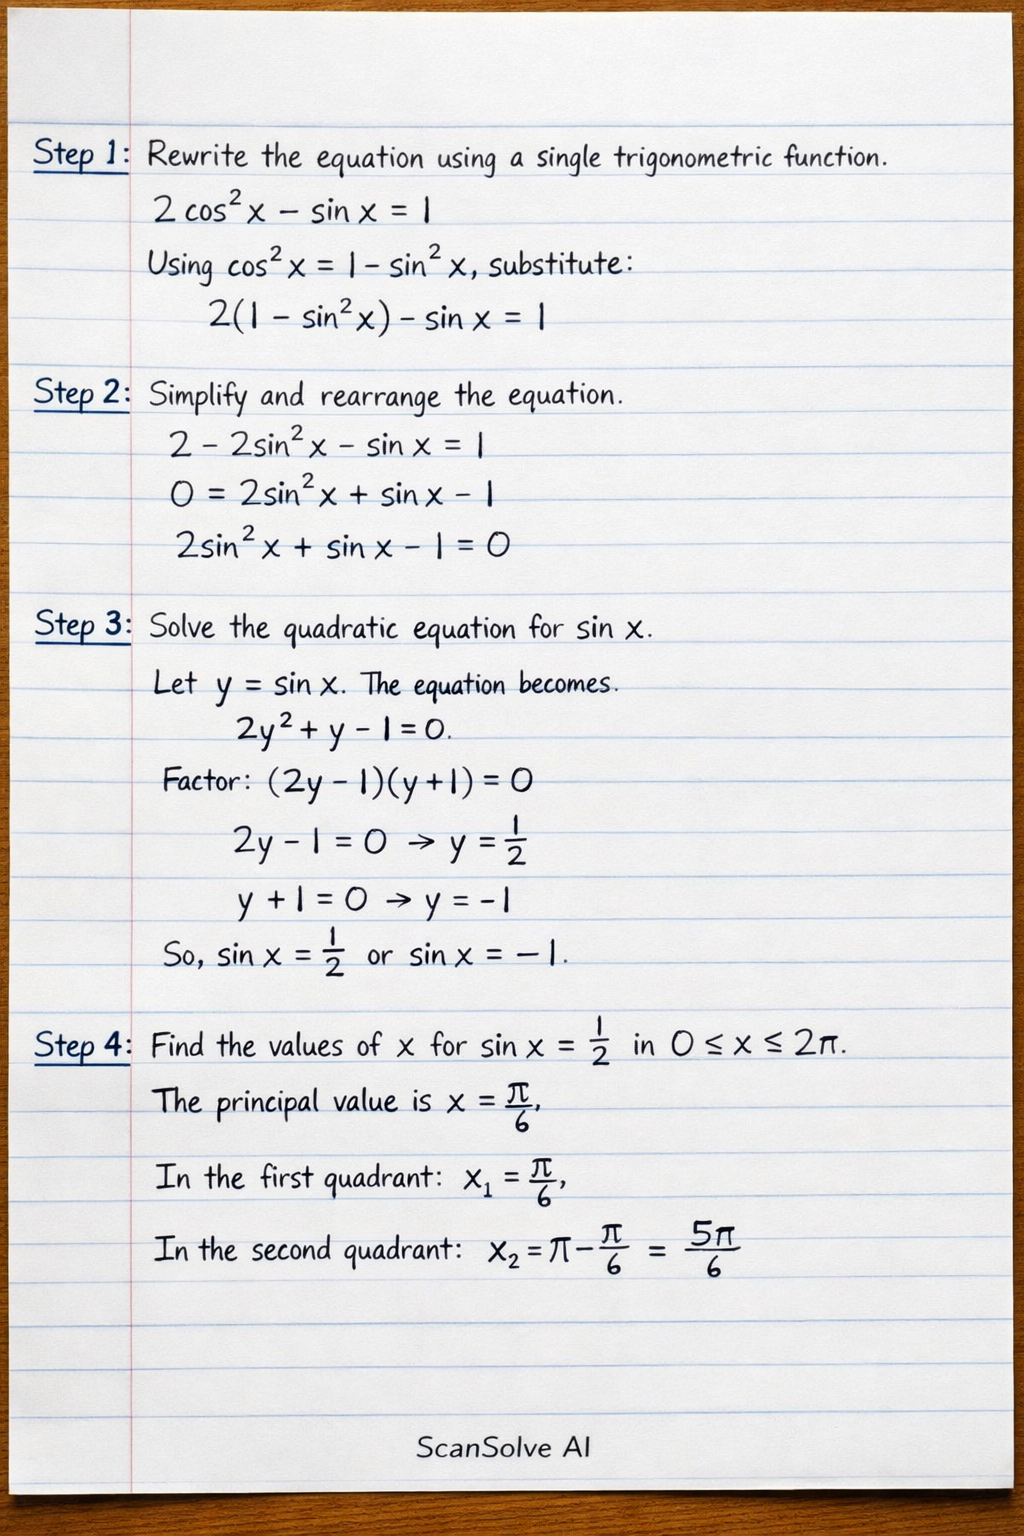 Step 1: Rewrite the equation using a single trigonometric function.
2 cos² x − sin x = 1
Using cos² x = 1 − sin² x, substitute:
2(1 − sin² x) − sin x = 1
Step 2: Simplify and rearrange the equation.
2 − 2sin² x − sin x = 1
0 = 2sin² x + sin x − 1
2sin² x + sin x − 1 = 0
Step 3: Solve the quadratic equation for sin x.
Let y = sin x. The equation becomes.
2y² + y − 1 = 0.
Factor: (2y − 1)(y + 1) = 0
2y − 1 = 0 → y = 1/2
y + 1 = 0 → y = −1
So, sin x = 1/2 or sin x = −1.
Step 4: Find the values of x for sin x = 1/2 in 0 ≤ x ≤ 2π.
The principal value is x = π/6,
In the first quadrant: x₁ = π/6,
In the second quadrant: x₂ = π − π/6 = 5π/6
ScanSolve AI